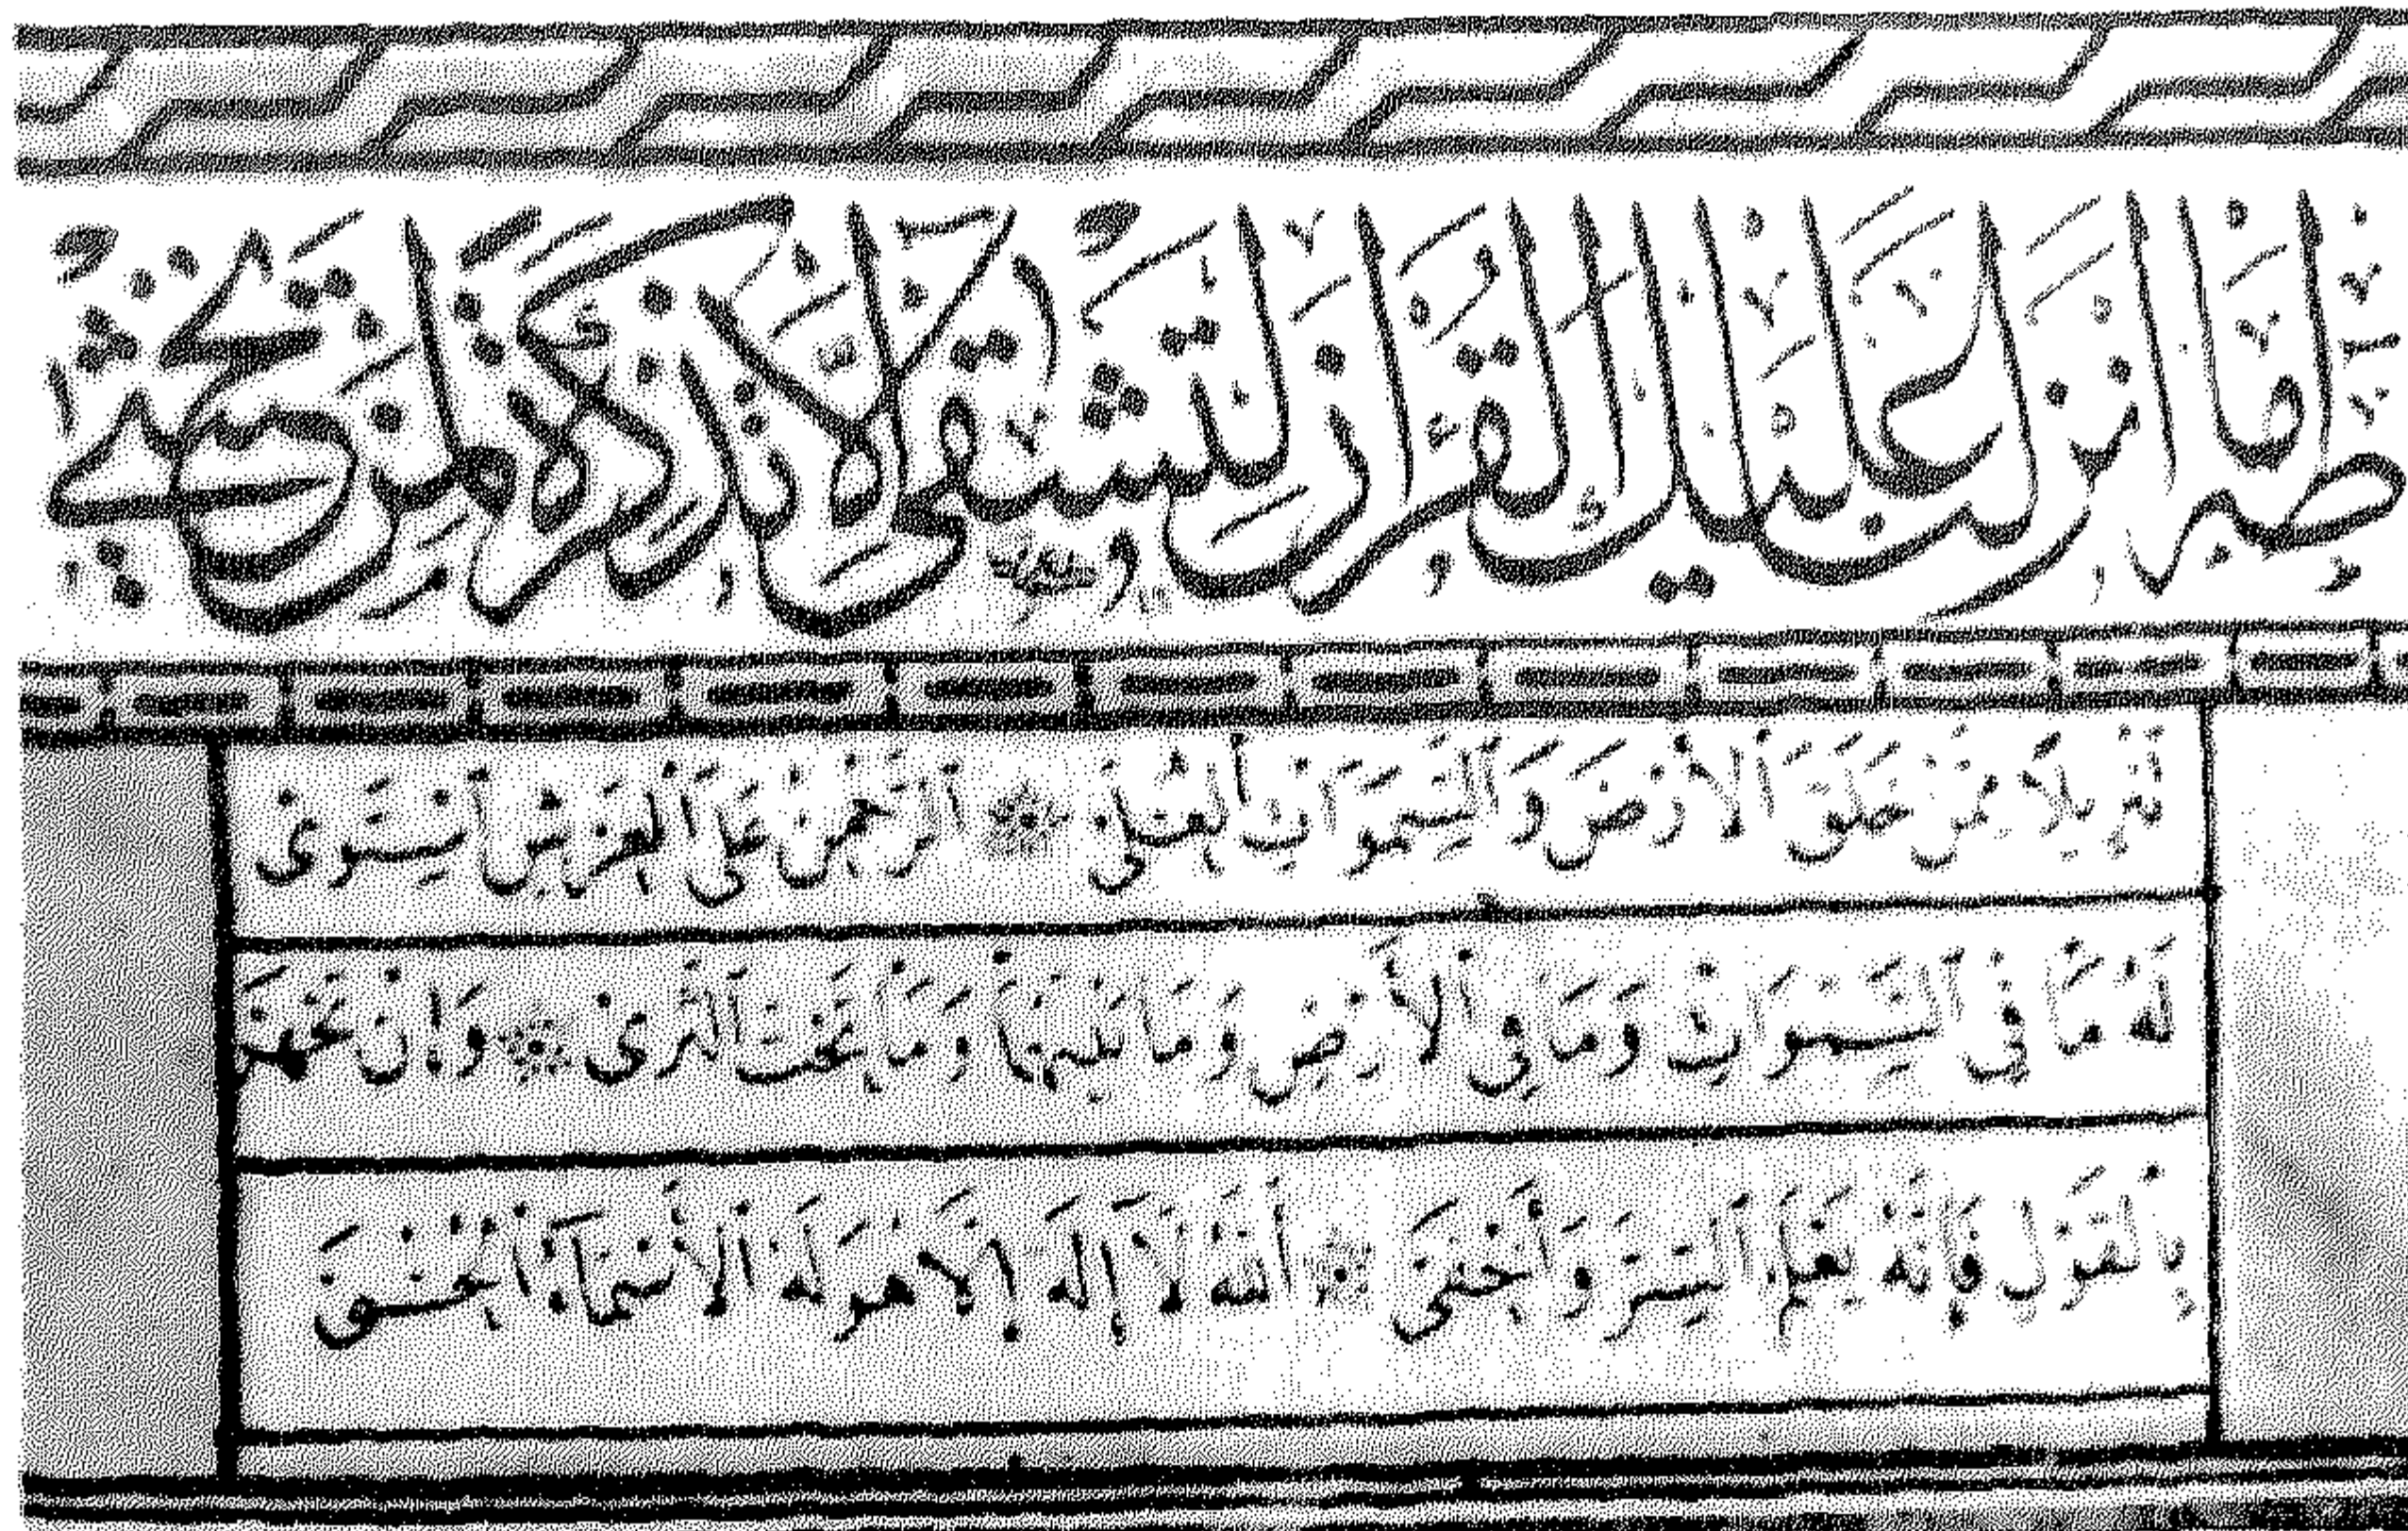 طه ما أنزلنا عليك القرآن لتشقى إلا تذكرة لمن يخشى
تنزيلا ممن خلق الأرض والسموات العلى الرحمن على العرش استوى
له ما في السموات وما في الأرض وما بينهما وما تحت الثرى وإن تجهر
بالقول فإنه يعلم السر وأخفى الله لا إله إلا هو له الأسماء الحسنى